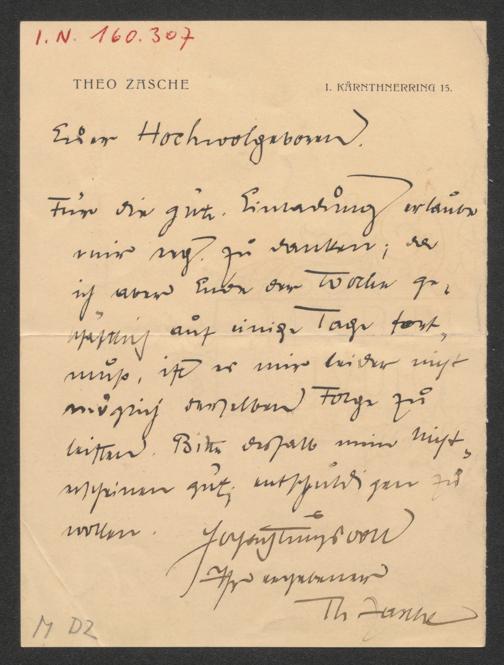 I.N. 160.307
THEO ZASCHE
I. KÄRNTHNERRING 15.
Euer Hochwolgeboren!
Für die güt. Einladung erlaube
mir erg. zu danken; da
ich aber Ende der Woche ge-
schäftlich auf einige Tage fort
muß, ist es mir leider nicht
möglich derselben Folge zu
leisten. Bitte deshalb mein Nicht-
erscheinen güt. entschuldigen zu
wollen.
Hochachtungsvoll
Ihr ergebener
Th Zasche
M DZ